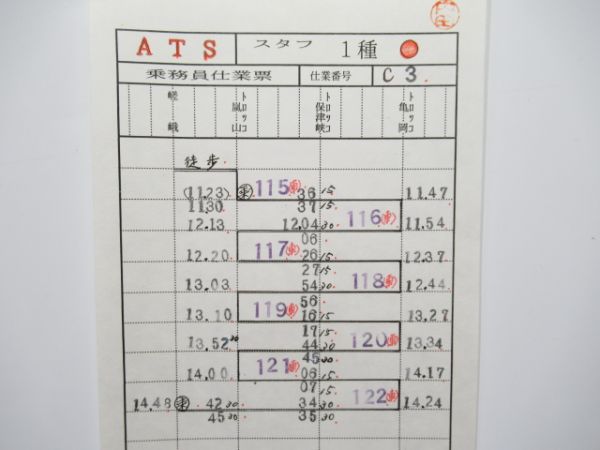 ATS スタフ 1種
乗務員仕業票 仕業番号 C 3.
嵯峨 トロッコ嵐山 トロッコ保津峡 トロッコ亀岡
徒歩
(11.23) 115 36 15 11.47
11.30 37 15
12.13 12.04 30 116 11.54
06
12.20 117 26 15 12.37
27 15
13.03 54 30 118 12.44
56
13.10 119 16 15 13.27
17 15
13.52 30 44 30 120 13.34
45 30
14.00 121 06 15 14.17
07 15
14.48 42 30 34 30 122 14.24
45 30 35 30